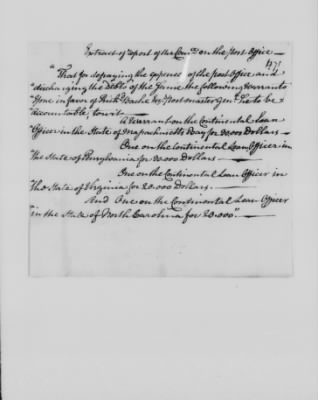 Extract of report of the Com.e on the Post Office —
471
"That for defraying the expences of the post Office and
"discharging the Debts of the same the following Warrants
"Issue in favor of Rich.d Bache Esq.r Postmaster Gen.l he to be
"accountable, to wit —
A Warrant on the Continental Loan
Officer in the State of Massachusetts Bay for 20.000 Dollars —
One on the Continental Loan Officer in
The State of Pensylvania for 20.000 Dollars —
One on the Continental Loan Officer in
The State of Virginia for 20.000 Dollars. —
And One on the Continental Loan Officer
"in the State of North Carolina for 20.000" —